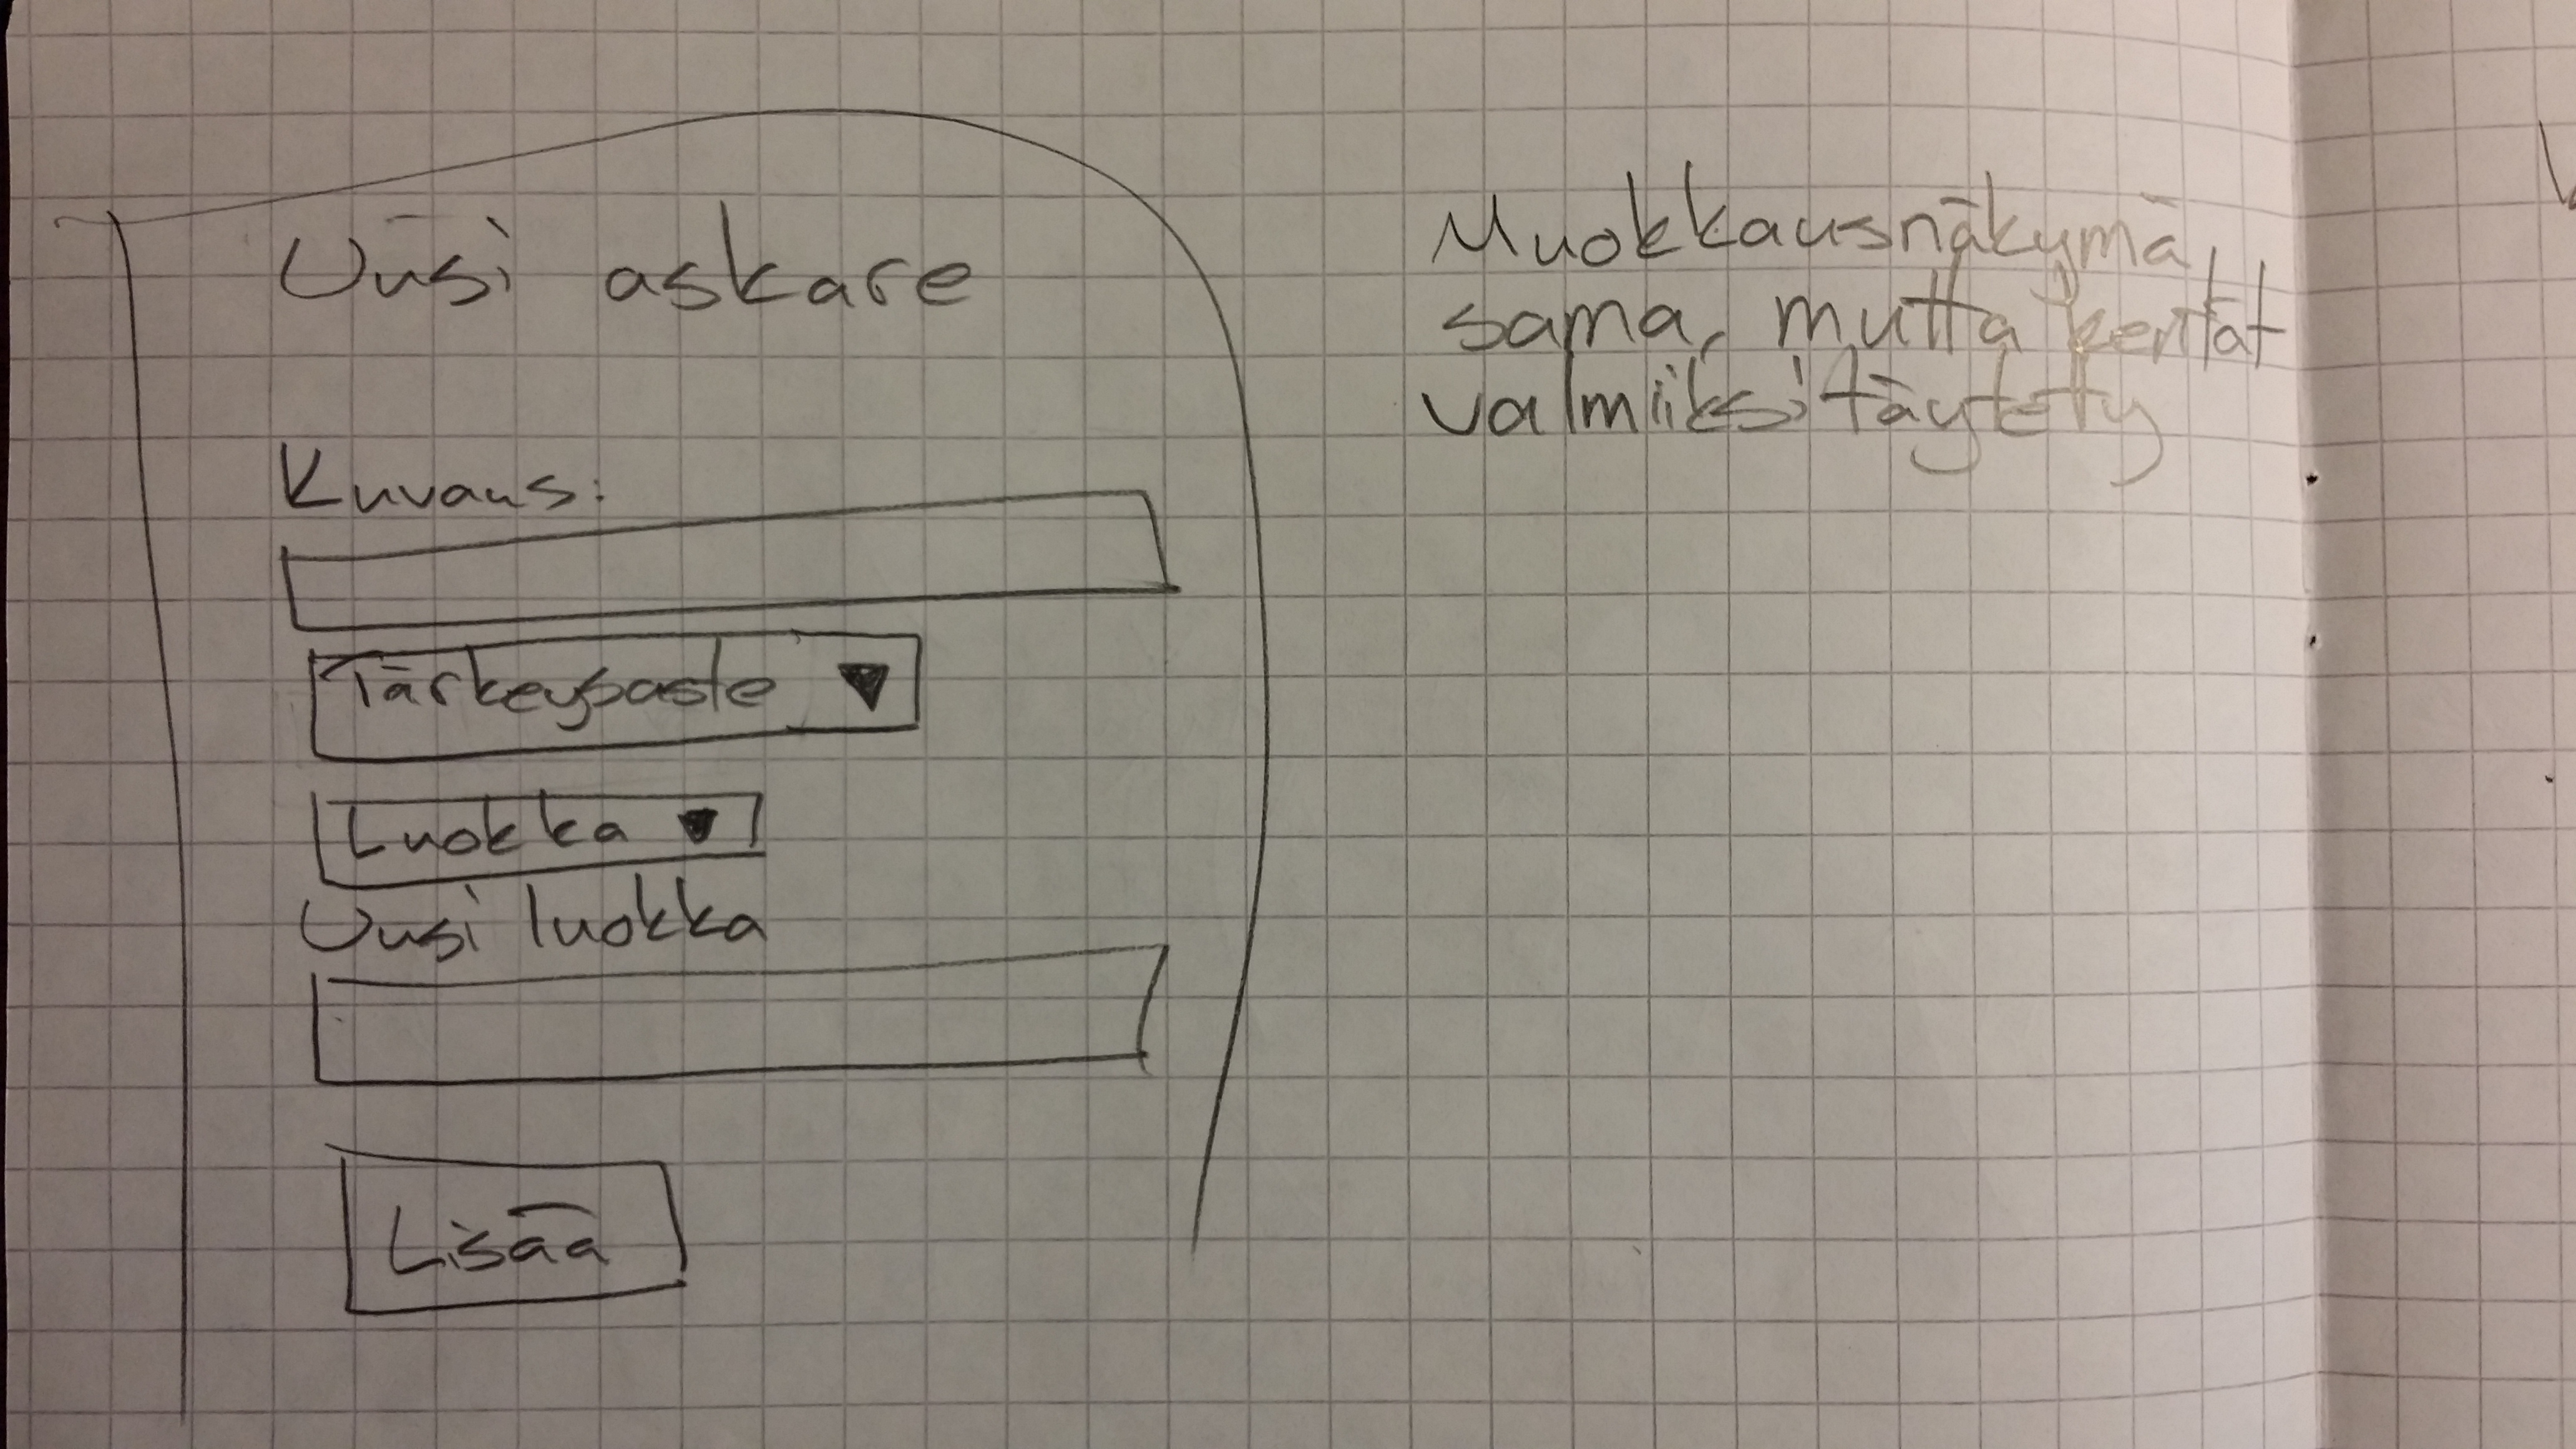 Uusi askare
Kuvaus:
Tärkeysaste
Luokka
Uusi luokka
Lisää
Muokkausnäkymä
sama, mutta kentät
valmiiksi täytetty